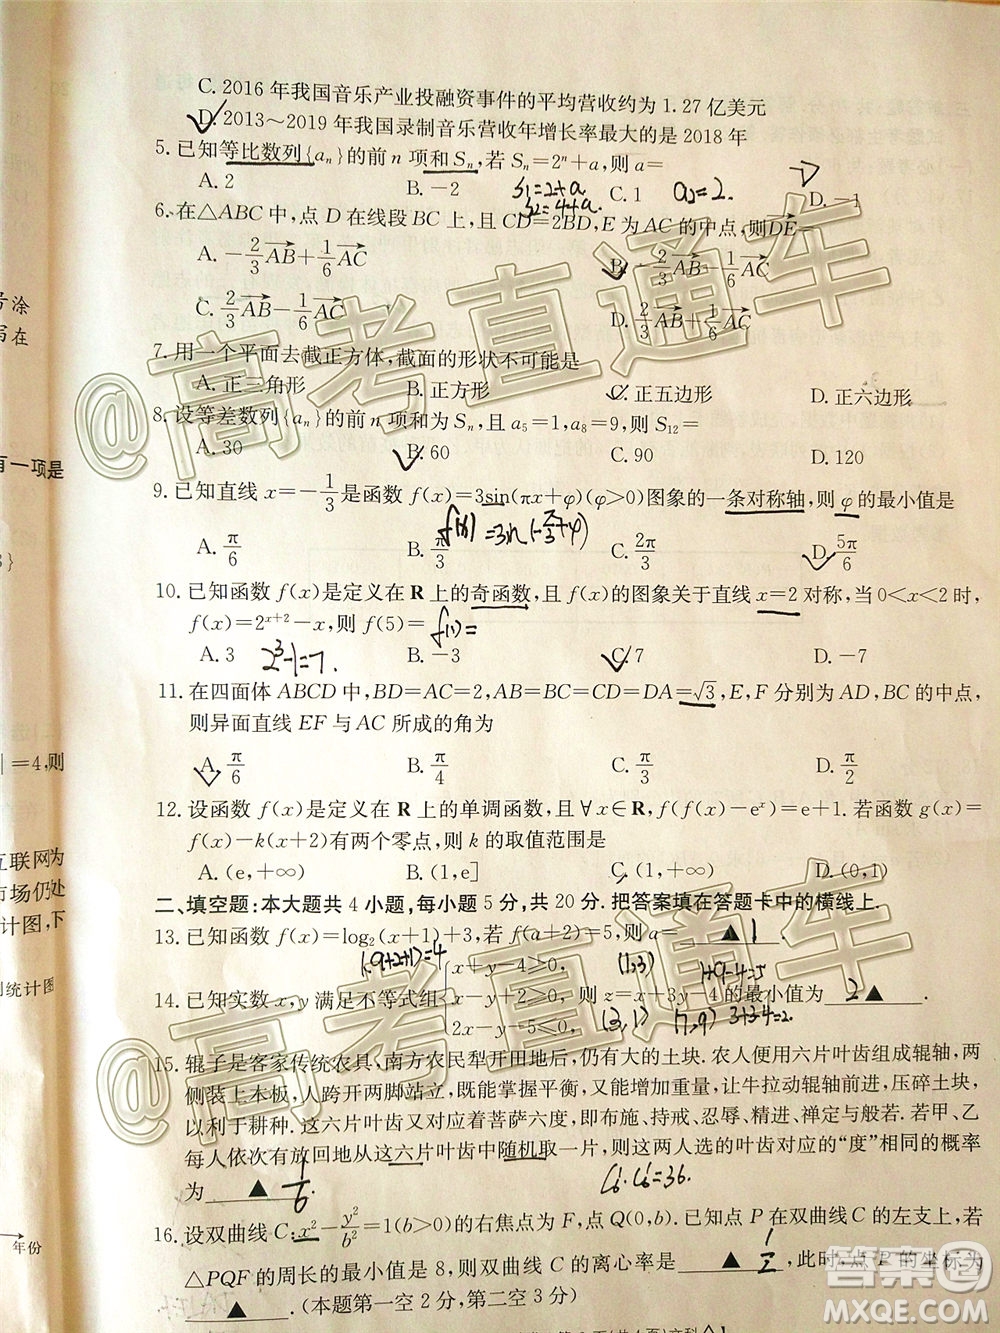 C. 2016 年我国音乐产业投融资事件的平均营收约为 1. 27 亿美元
D. 2013~2019 年我国录制音乐营收年增长率最大的是 2018 年
5. 已知等比数列{aₙ}的前 n 项和 Sₙ,若 Sₙ=2ⁿ+a,则 a=
A. 2 B. -2 C. 1 D. -1
S₁=2+a
S₂=4+a.
a₂=2.
6. 在△ABC 中,点 D 在线段 BC 上,且 CD=2BD,E 为 AC 的中点,则DE=
A. -2/3 AB+1/6 AC B. -2/3 AB-1/6 AC
C. 2/3 AB-1/6 AC D. 2/3 AB+1/6 AC
7. 用一个平面去截正方体,截面的形状不可能是
A. 正三角形 B. 正方形 C. 正五边形 D. 正六边形
8. 设等差数列{aₙ}的前 n 项和为 Sₙ,且 a₅=1,a₈=9,则 S₁₂=
A. 30 B. 60 C. 90 D. 120
9. 已知直线 x=-1/3是函数 f(x)=3sin(πx+φ)(φ>0)图象的一条对称轴,则 φ的最小值是
A. π/6 B. π/3 C. 2π/3 D. 5π/6
10. 已知函数 f(x)是定义在 R 上的奇函数,且 f(x)的图象关于直线 x=2 对称,当 0<x<2 时,
f(x)=2ˣ⁺²-x,则 f(5)= f(1)=
A. 3 B. -3 C. 7 D. -7
2³-1=7.
11. 在四面体 ABCD 中,BD=AC=2,AB=BC=CD=DA=√3,E,F 分别为 AD,BC 的中点,
则异面直线 EF 与 AC 所成的角为
A. π/6 B. π/4 C. π/3 D. π/2
12. 设函数 f(x)是定义在 R 上的单调函数,且∀x∈R,f(f(x)-eˣ)=e+1. 若函数 g(x)=
f(x)-k(x+2)有两个零点,则 k 的取值范围是
A. (e,+∞) B. (1,e] C. (1,+∞) D. (0,1)
二、填空题:本大题共 4 小题,每小题 5 分,共 20 分. 把答案填在答题卡中的横线上.
13. 已知函数 f(x)=log₂(x+1)+3,若 f(a+2)=5,则 a= ▲ 1 .
x+y-4≥0,
14. 已知实数 x,y 满足不等式组 则 z=x+3y-4的最小值为 2 ▲ .
2x-y-5≤0,
(1,3) 1+9-4=5
(3,1) (7,9) 3+3-4=2.
15. 辊子是客家传统农具,南方农民犁开田地后,仍有大的土块. 农人便用六片叶齿组成辊轴,两
侧装上木板,人跨开两脚站立,既能掌握平衡,又能增加重量,让牛拉动辊轴前进,压碎土块,
以利于耕种. 这六片叶齿又对应着菩萨六度,即布施、持戒、忍辱、精进、禅定与般若. 若甲、乙
每人依次有放回地从这六片叶齿中随机取一片,则这两人选的叶齿对应的“度”相同的概率
为 ▲ 1/6 .
C₆¹·C₆¹=36.
16. 设双曲线 C:x²-y²/b²=1(b>0)的右焦点为 F,点 Q(0,b). 已知点 P 在双曲线 C 的左支上,若
△PQF 的周长的最小值是 8,则双曲线 C 的离心率是 ▲ ,此时,点 P 的坐标为
▲ . (本题第一空 2 分,第二空 3 分)
号涂
写在
有一项是
3}
|=4,则
互联网为
市场仍处
计图,下
统计图
年份
@高考直通车
@高考直通车
答案圈
MXQE.COM